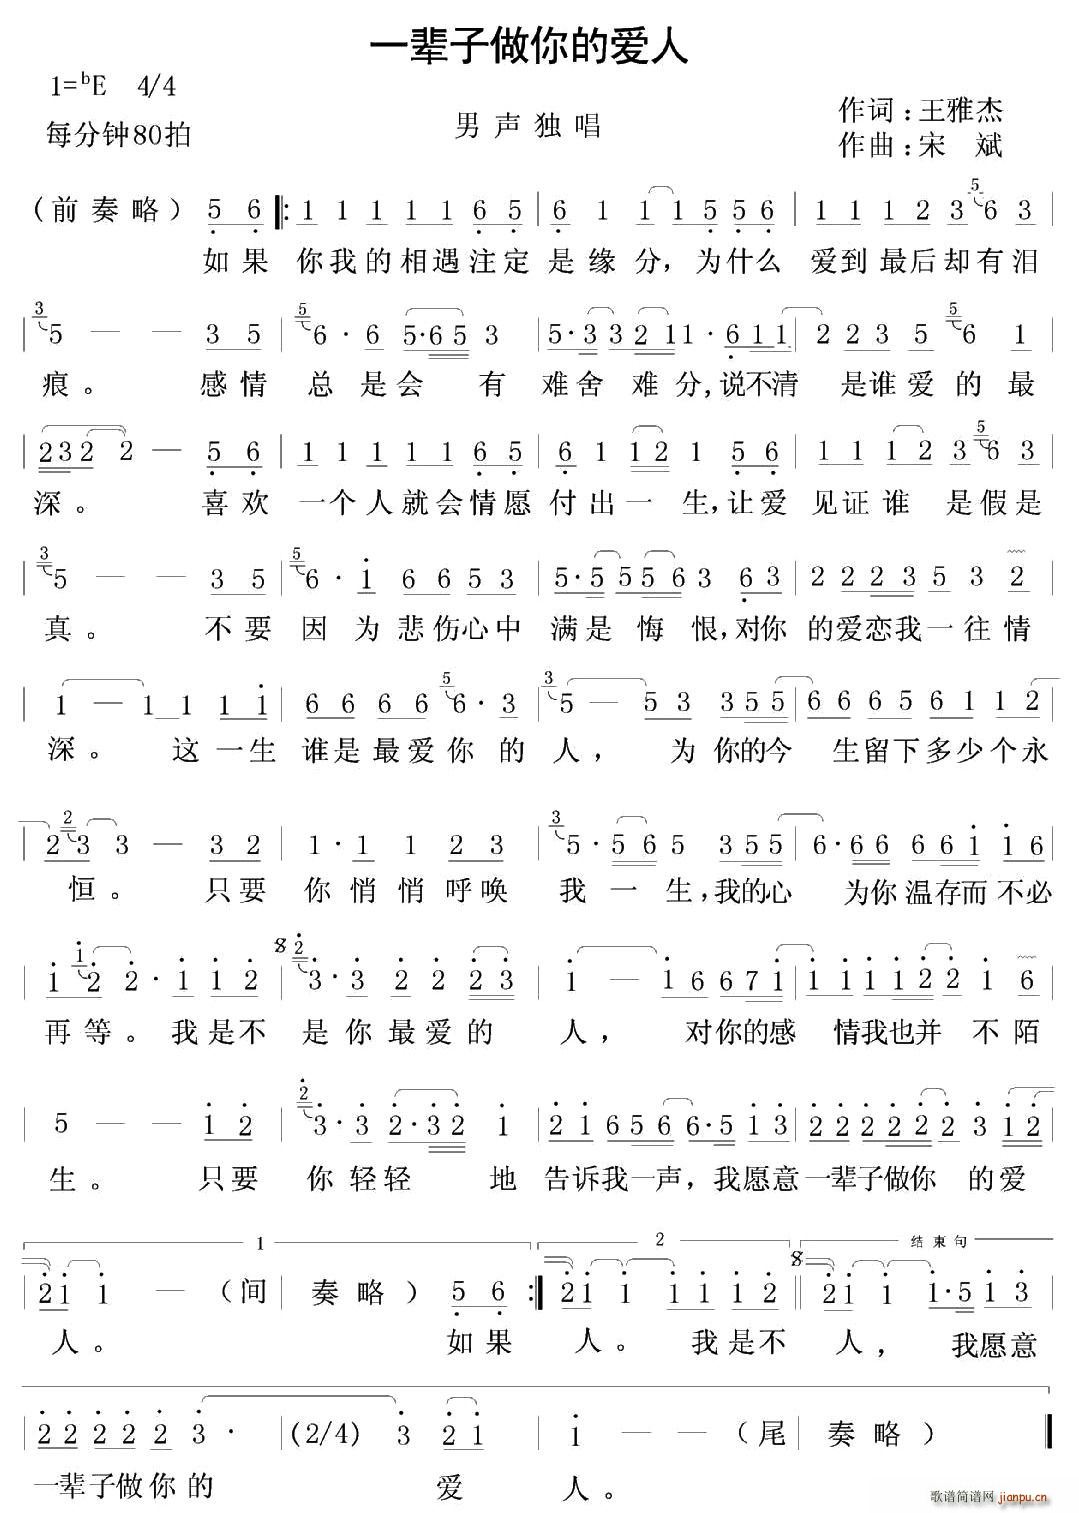 一辈子做你的爱人
1=ᵇE 4/4
每分钟80拍
男声独唱
作词:王雅杰
作曲:宋 斌
(前奏略) 5 6 |: 1 1 1 1 1 6 5 | 6 1 1 1 5 5 6 | 1 1 1 2 3 5 6 3
如果 你我的相遇注定 是缘分，为什么 爱到最后却有泪
3 5 — — 3 5 | 5 6· 6 5·6 5 3 | 5·3 3 2 1 1 1· 6 1 1 | 2 2 3 5 5 6 1
痕。 感情 总是会 有 难舍 难分，说不清 是谁爱的最
2 3 2 2 — 5 6 | 1 1 1 1 1 6 5 | 6 1 1 2 1 5 6 | 1 1 1 2 3 5 6 3
深。 喜欢 一个人就会情愿 付出一 生，让爱 见证谁 是假是
3 5 — — 3 5 | 5 6· 1 6 6 5 3 | 5·5 5 5 6 3 6 3 | 2 2 2 3 5 3 2
真。 不要 因为悲伤心中 满是悔恨，对你 的爱恋我一往情
1 — 1 1 1 1 | 6 6 6 6 5 6· 3 | 3 5 — 5 3 3 5 5 | 6 6 6 5 6 1 1 2
深。 这一生 谁是最爱你的 人， 为 你的今 生留下多少个永
2 2 3 3 — 3 2 | 1· 1 1 2 3 | 3 5· 5 6 5 3 5 5 | 6· 6 6 6 6 1 1 6
恒。 只要 你悄悄呼唤 我一生，我的心 为你温存而不必
1 1 2 2· 1 1 2 | 2 3· 3 2 2 2 3 | 1 — 1 6 6 7 1 | 1 1 1 2 2 1 6
再等。我是不 是你最爱的 人， 对你的感 情我也并 不陌
5 — — 1 2 | 2 3· 3 2·3 2 1 | 2 1 6 5 6 6·5 1 3 | 2 2 2 2 2 2 3 1 2
生。 只要 你轻轻 地 告诉我一声，我愿意一辈子做你 的爱
1 2 结束句
2 1 1 — (间 | 奏略) 5 6 :| 2 1 1 1 1 1 2 || 2 1 1 1·5 1 3
人。 如果 人。 我是不 人， 我愿意
2 2 2 2 2 3· | (2/4) 3 2 1 | 1 — — (尾 | 奏略)
一辈子做你的 爱 人。
歌谱简谱网 jianpu.cn